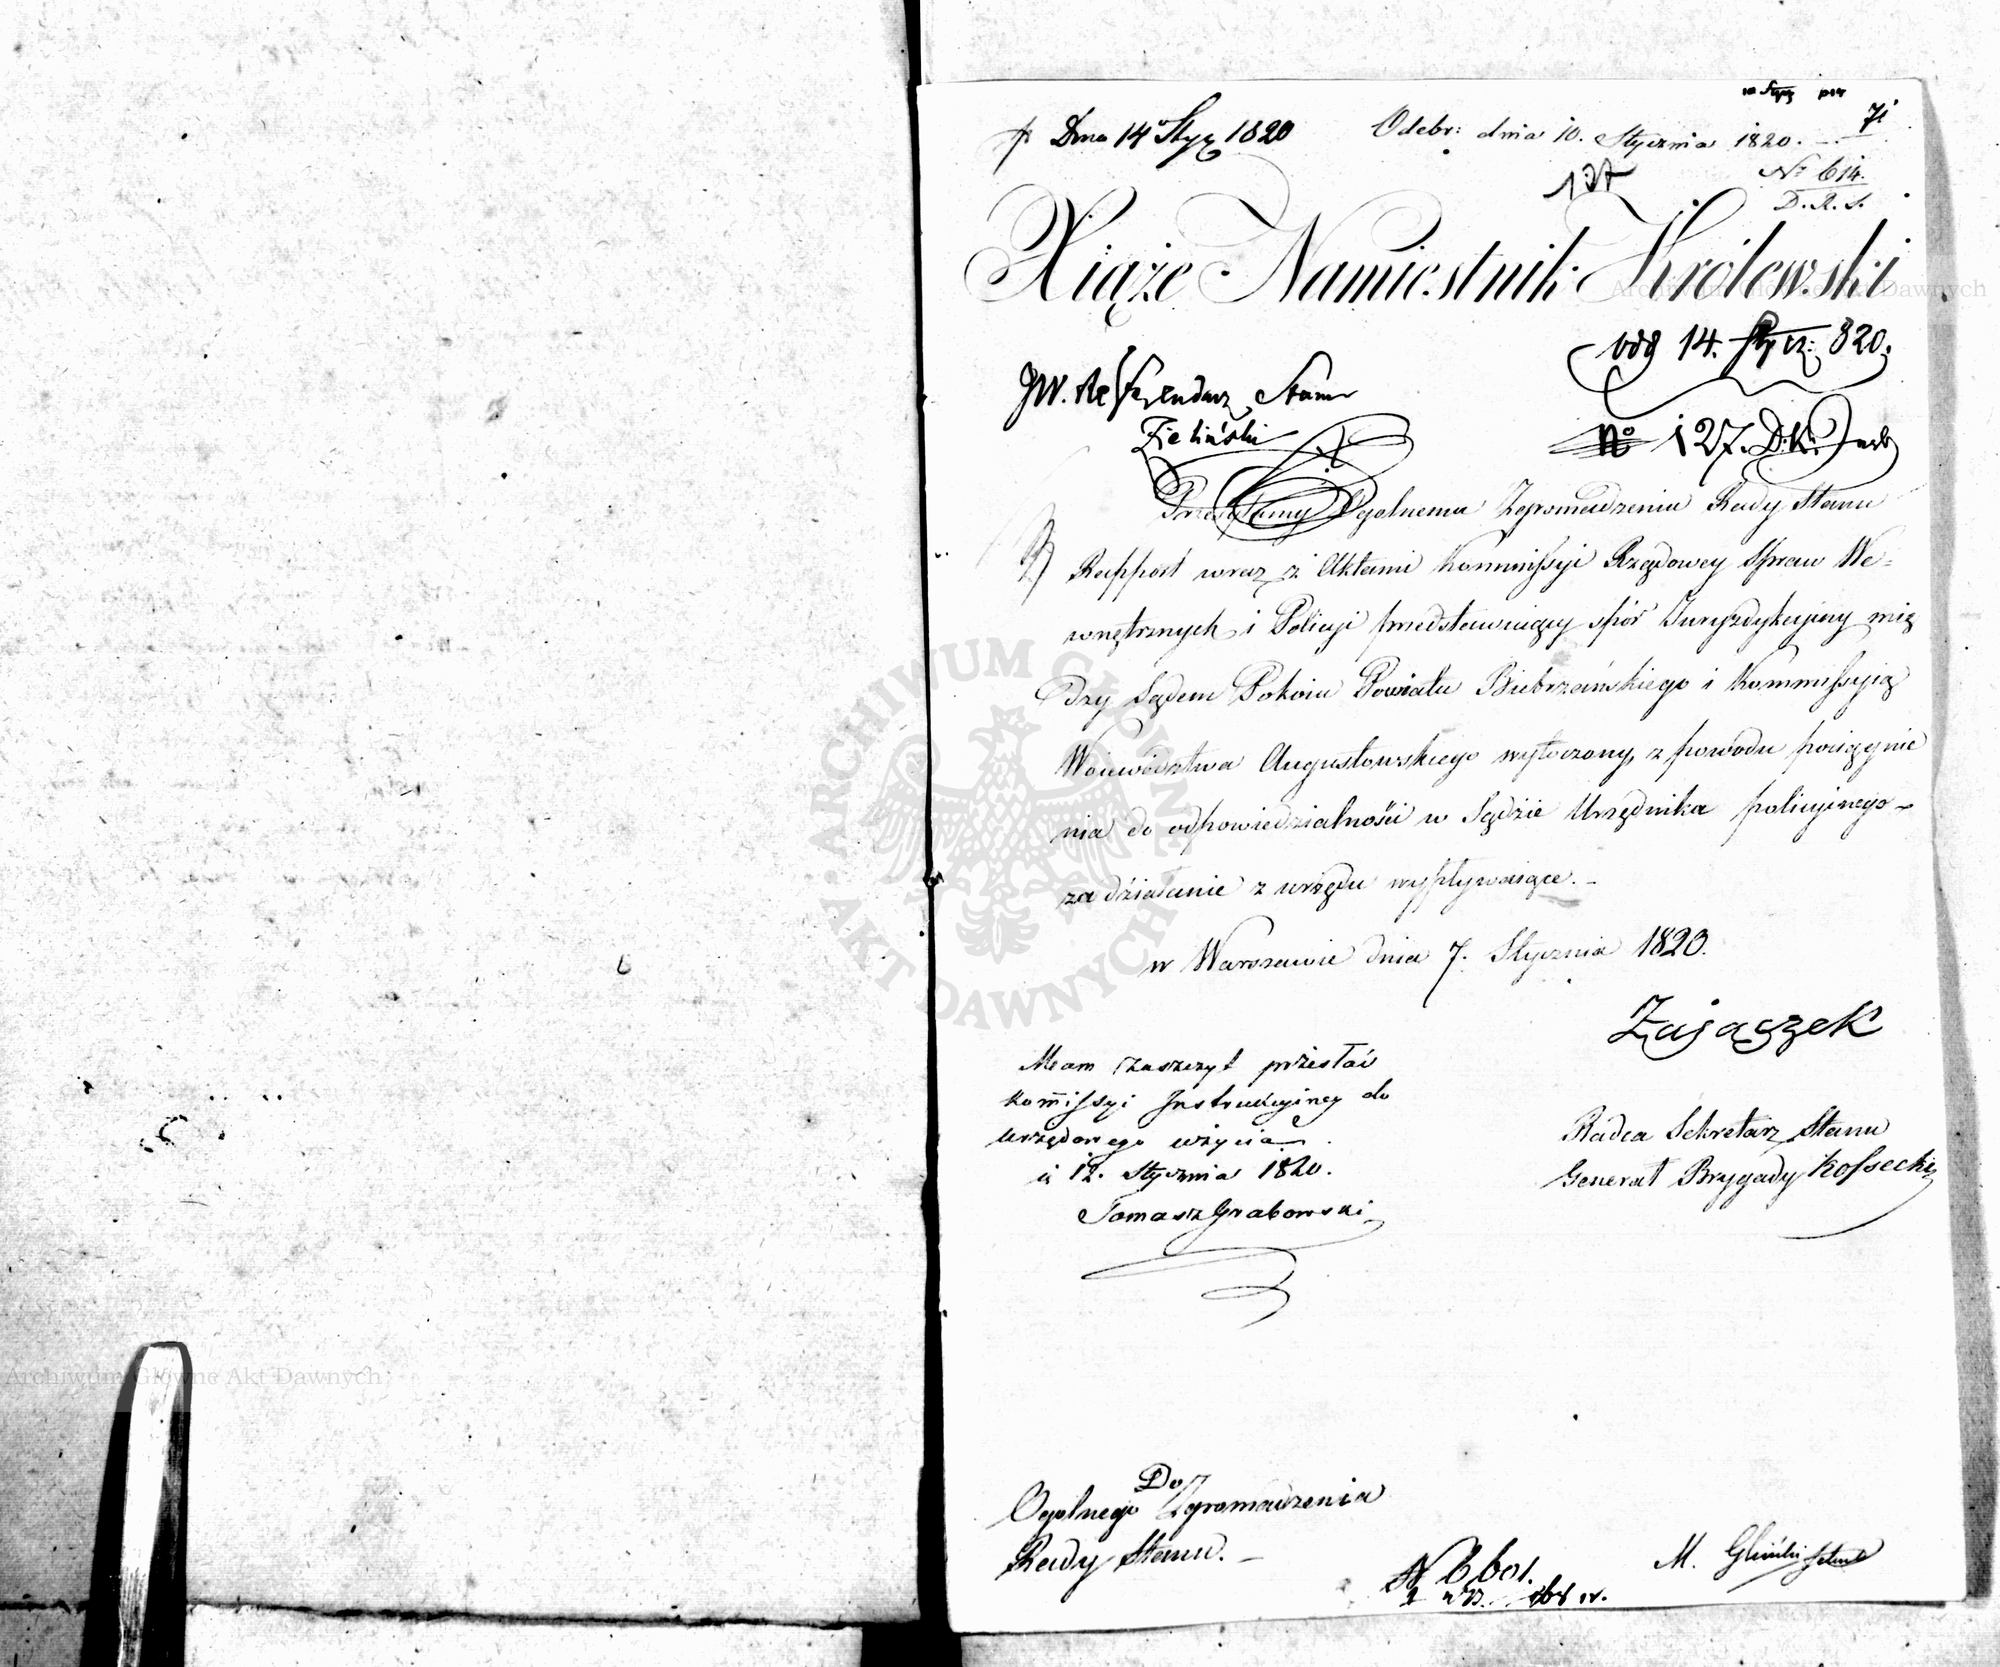 Dnia 14 Stycz 1820
Odebr: dnia 10. Stycznia 1820.
71
137
No 614.
D.R.S.
Xiąże Namiestnik Królewski
14. Stycz: 820.
JW. Referendarz Stanu
Zieliński
No 127. D.K.
Przesyłamy Ogolnemu Zgromadzeniu Rady Stanu
Rapport wraz z Aktami Kommissyi Rządowey Spraw We-
wnętrznych i Policyi przedstawuiący spór Juryzdykcyiny mię
dzy Sądem Pokoiu Powiatu Biebrzańskiego i Kommissyią
Woiewództwa Augustowskiego wytoczony, z powodu pociągnie
nia do odpowiedzialności w Sądzie Urzędnika policyinego
za działanie z urzędu wypływaiące.
w Warszawie dnia 7. Stycznia 1820.
Zajączek
Mam zaszczyt przesłać
Kommissyi Instrukcyiney do
urzędowego użycia
12. Stycznia 1820.
Tomasz Grabowski
Radca Sekretarz Stanu
Generał Brygady Kossecki
Do
Ogolnego Zgromadzenia
Rady Stanu.
N 6601.
M. Gliński
ARCHIWUM GŁÓWNE AKT DAWNYCH
Archiwum Główne Akt Dawnych
Archiwum Główne Akt Dawnych